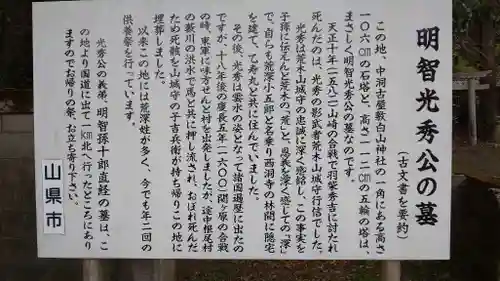 明智光秀公の墓
(古文書を要約)
この地、中洞古屋敷白山神社の一角にある高さ
一〇六cmの石塔と、高さ一一二cmの五輪の塔は、
まさしく明智光秀公の墓なのです。
天正十年(一五八二)山崎の合戦で羽柴秀吉に討たれ
死んだのは、光秀の影武者荒木山城守行信でした。
光秀は荒木山城守の忠誠に深く感銘し、この事実を
子孫に伝えんと荒木の「荒」と、恩義を深く感じての「深」
で、自らも荒深小五郎と名乗り西洞寺の林間に隠宅
を建て、乙寿丸と共に住んでいました。
その後、光秀は雲水の姿となって諸国遍歴に出たの
ですが、十八年後の慶長五年(一六〇〇)関ヶ原の合戦
の時、東軍に味方せんと村を出発しましたが、途中根尾村
の薮川の洪水で馬と共に押し流され、おぼれ死んだ
ため死骸を山城守の子吉兵衛が持ち帰りこの地に
埋葬しました。
以来この地には荒深姓が多く、今でも年二回の
供養祭を行っています。
光秀公の義弟、明智孫十郎直経の墓は、こ
の地より国道に出て一km北へ行ったところにあり
ますのでお帰りの祭、お立ち寄り下さい。
山県市